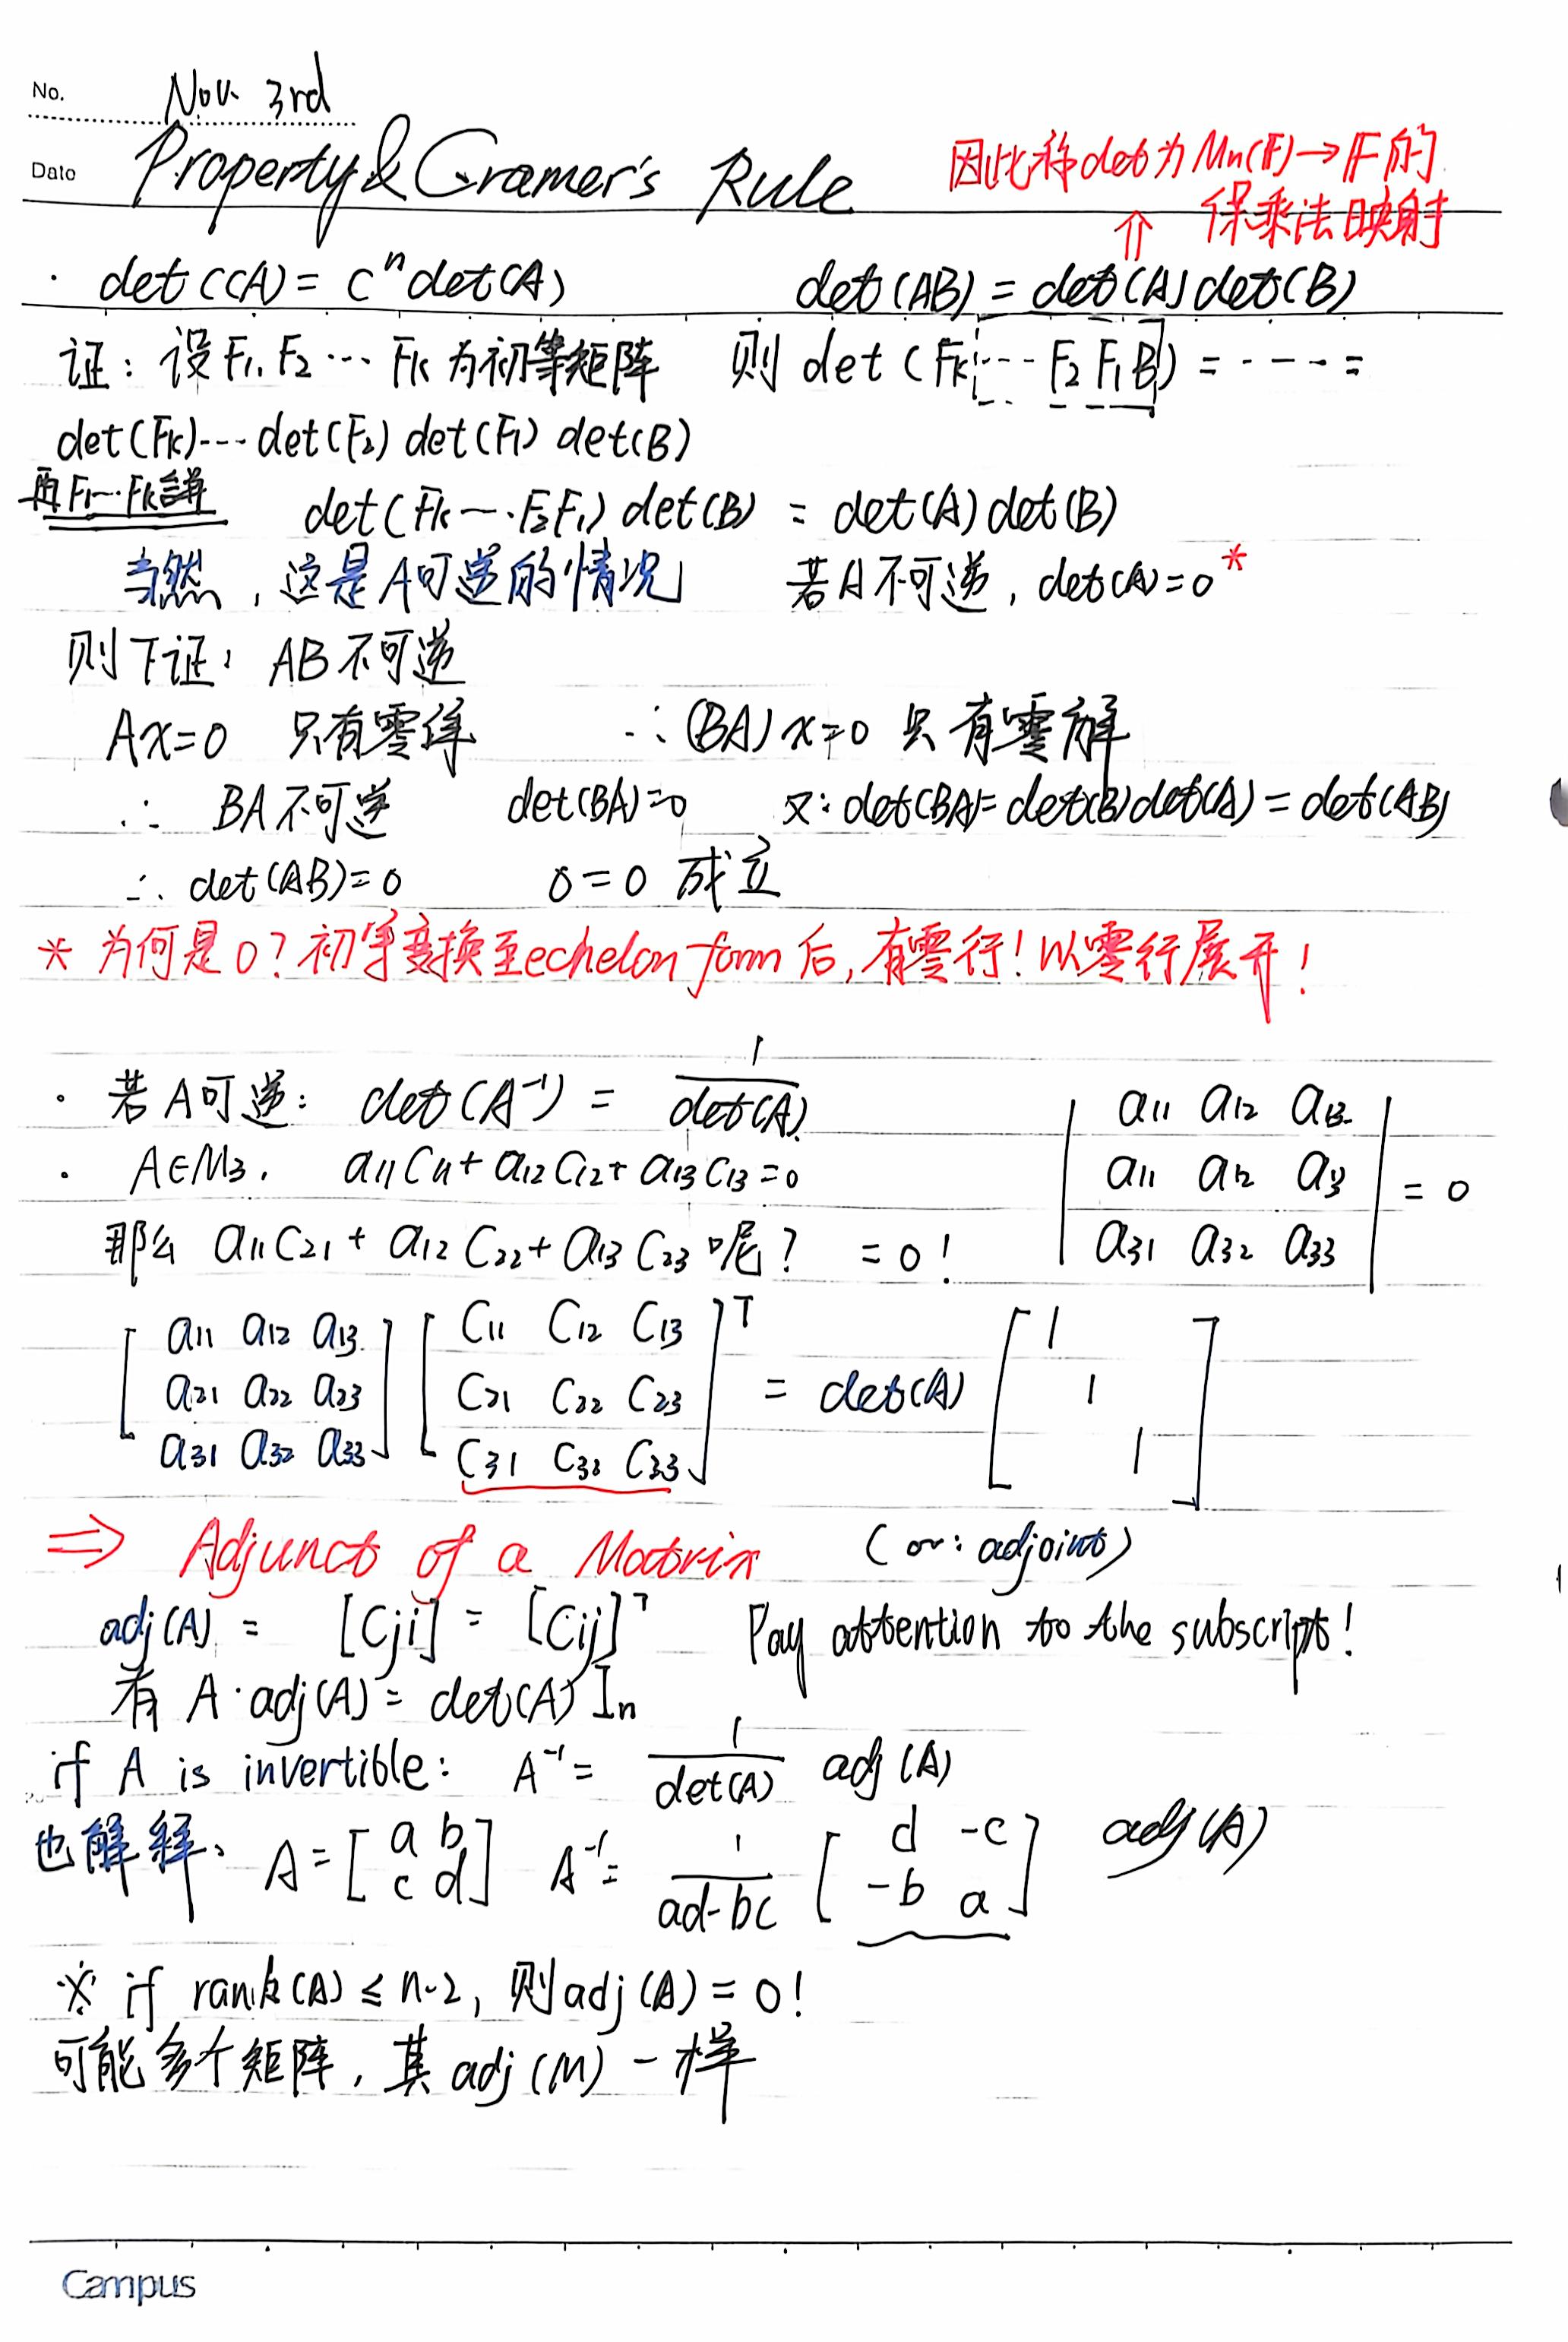 No. Nov. 3rd
Date Property & Cramer's Rule
因此称det为Mn(F)→F的
保乘法映射
⇑
· det(cA) = cⁿdet(A) det(AB) = det(A)det(B)
证：设F₁, F₂ ⋯ Fk为初等矩阵 则 det(Fk ⋯ F₂F₁B) = ---- =
det(Fk)---det(F₂)det(F₁)det(B)
再F₁⋯Fk
det(Fk⋯F₂F₁)det(B) = det(A)det(B)
当然，这是A可逆的情况 若A不可逆，det(A)=0*
则下证：AB不可逆
Ax=0 只有零 ∴(BA)x=0 只有零解
∴ BA不可逆 det(BA)=0 又：det(BA)=det(B)det(A)=det(AB)
∴ det(AB)=0 0=0 成立
* 为何是0？初等变换至echelon form后，有零行！以零行展开！
· 若A可逆：det(A⁻¹) = 1/det(A)
· A∈M₃, a₁₁C₁₁+a₁₂C₁₂+a₁₃C₁₃=0
那么 a₁₁C₂₁+a₁₂C₂₂+a₁₃C₂₃呢？ =0！
| a₁₁ a₁₂ a₁₃
a₁₁ a₁₂ a₁₃
a₃₁ a₃₂ a₃₃ | = 0
[ a₁₁ a₁₂ a₁₃ ] [ C₁₁ C₁₂ C₁₃ ]ᵀ [ 1
a₂₁ a₂₂ a₂₃ C₂₁ C₂₂ C₂₃ = det(A) 1
a₃₁ a₃₂ a₃₃ C₃₁ C₃₂ C₃₃ 1 ]
⇒ Adjunct of a Matrix (or: adjoint)
adj(A) = [Cji] = [Cij]ᵀ Pay attention to the subscript!
有 A·adj(A) = det(A) In
if A is invertible: A⁻¹ = 1/det(A) adj(A)
也解释、A = [a b; c d] A⁻¹ = 1/ad-bc [d -c; -b a] adj(A)
※ if rank(A) ≤ n-2, 则adj(A) = 0！
可能多个矩阵，其adj(M)一样
Campus